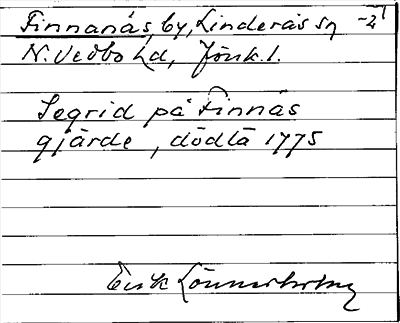 Finnanäs, by, Linderås sn -21
N. Vedbo hd, Jönk. l.
Segrid på Finnäs
gjärde, dödtå 1775
Erik